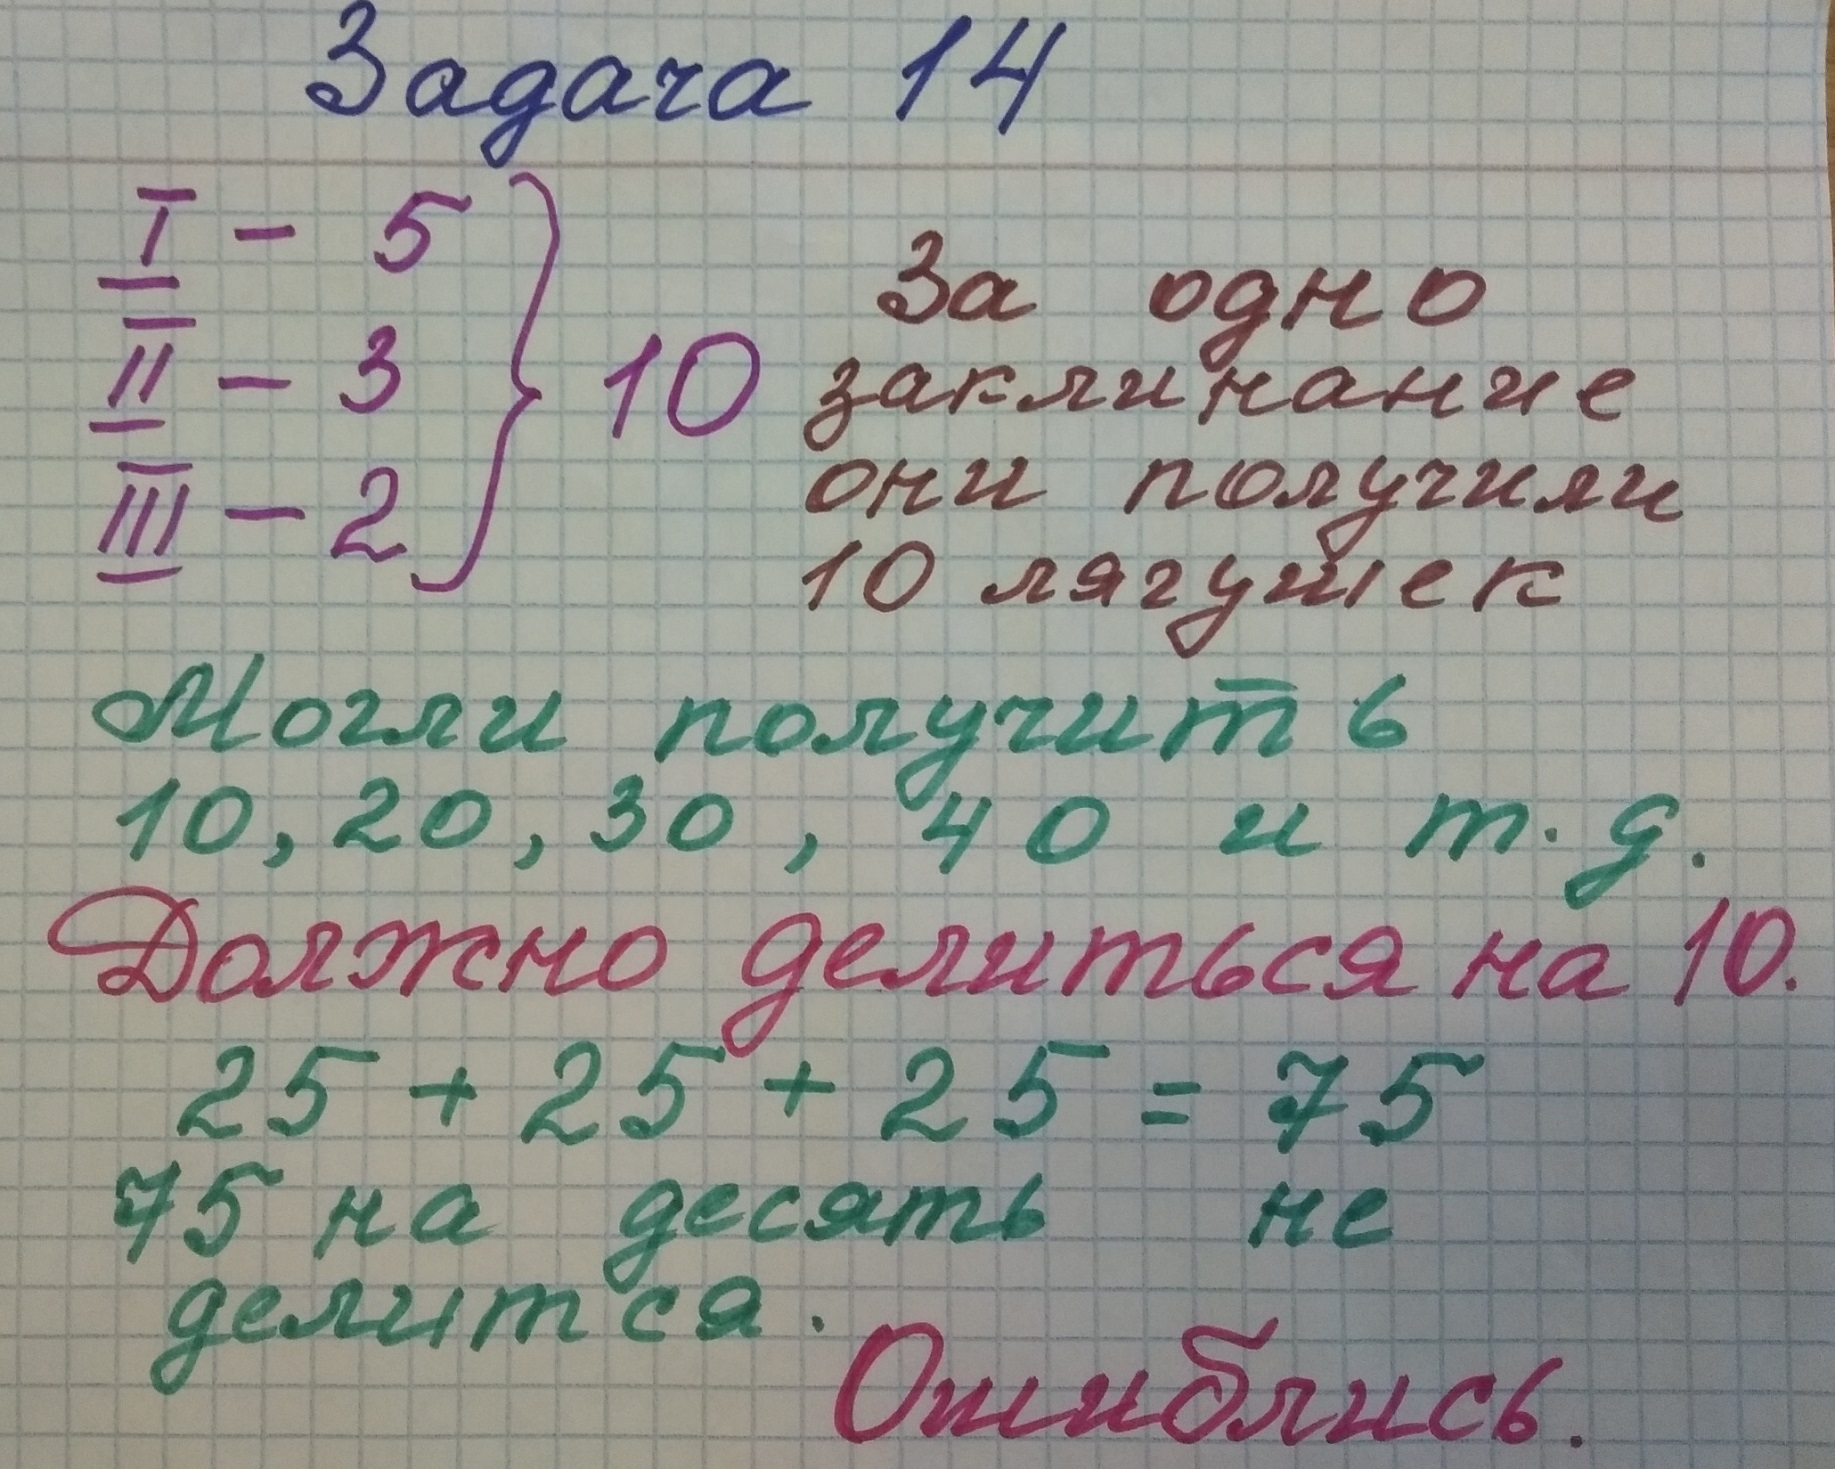 Задача 14
I - 5
II - 3
III - 2
10
За одно
заклинание
они получили
10 лягушек
Могли получить
10, 20, 30, 40 и т. д.
Должно делиться на 10.
25 + 25 + 25 = 75
75 на десять не
делится.
Ошиблись.